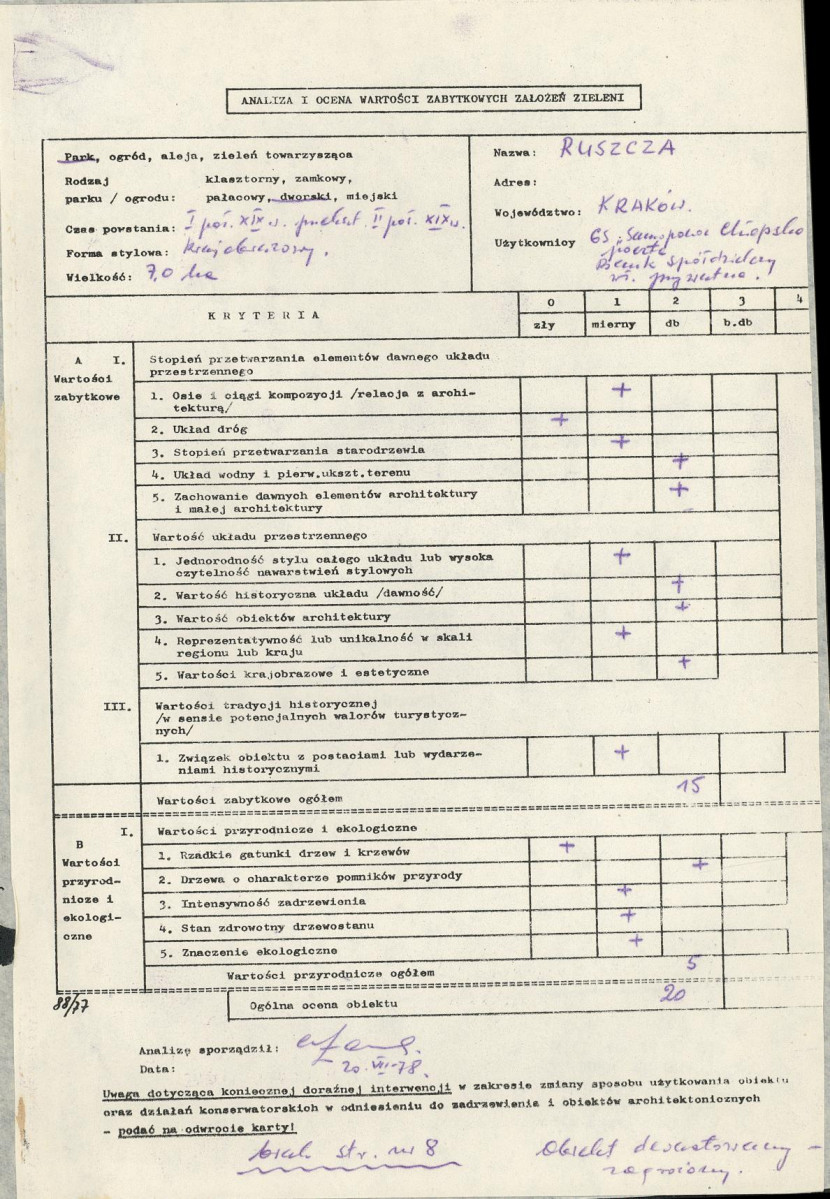 ANALIZA I OCENA WARTOŚCI ZABYTKOWYCH ZAŁOŻEŃ ZIELENI
Park, ogród, aleja, zieleń towarzysząca
Rodzaj klasztorny, zamkowy,
parku / ogrodu: pałacowy, dworski, miejski
Czas powstania: I poł. XIX w. przekszt. II poł. XIX w.
Forma stylowa: krajobrazowy.
Wielkość: 7,0 ha
Nazwa: RUSZCZA
Adres:
Województwo: KRAKÓW.
Użytkownicy GS „Samopomoc Chłopska
poczta
Bank Spółdzielczy
wł. prywatna.
KRYTERIA
0 1 2 3 4
zły mierny db b.db
A I. Stopień przetwarzania elementów dawnego układu
przestrzennego
Wartości
zabytkowe
1. Osie i ciągi kompozycji /relacja z archi-
tekturą/ +
2. Układ dróg +
3. Stopień przetwarzania starodrzewia +
4. Układ wodny i pierw.ukszt.terenu +
5. Zachowanie dawnych elementów architektury
i małej architektury +
II. Wartość układu przestrzennego
1. Jednorodność stylu całego układu lub wysoka
czytelność nawarstwień stylowych +
2. Wartość historyczna układu /dawność/ +
3. Wartość obiektów architektury +
4. Reprezentatywność lub unikalność w skali
regionu lub kraju +
5. Wartości krajobrazowe i estetyczne +
III. Wartości tradycji historycznej
/w sensie potencjalnych walorów turystycz-
nych/
1. Związek obiektu z postaciami lub wydarze-
niami historycznymi +
Wartości zabytkowe ogółem 15
B I. Wartości przyrodnicze i ekologiczne
Wartości
przyrod-
nicze i
ekologi-
czne
1. Rzadkie gatunki drzew i krzewów +
2. Drzewa o charakterze pomników przyrody +
3. Intensywność zadrzewienia +
4. Stan zdrowotny drzewostanu +
5. Znaczenie ekologiczne +
Wartości przyrodnicze ogółem 5
88/77
Ogólna ocena obiektu 20
Analizę sporządził:
Data: 20.VII.78.
Uwaga dotycząca koniecznej doraźnej interwencji w zakresie zmiany sposobu użytkowania obiektu
oraz działań konserwatorskich w odniesieniu do zadrzewienia i obiektów architektonicznych
- podać na odwrocie karty!
brak str. nr 8
Obiekt dewastowany -
zagrożony.